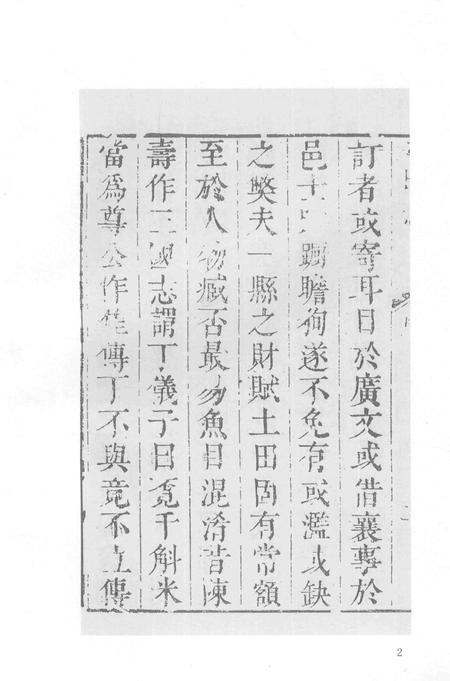 訂者或寄耳目於廣文或借襄專於
邑士瞻徇遂不免有或濫或缺
之獘夫一縣之財賦土田固有常額
至於人物臧否最易魚目混淆昔陳
壽作三國志謂丁儀子曰覓千斛米
當爲尊公作佳傳丁不與竟不立傳
2